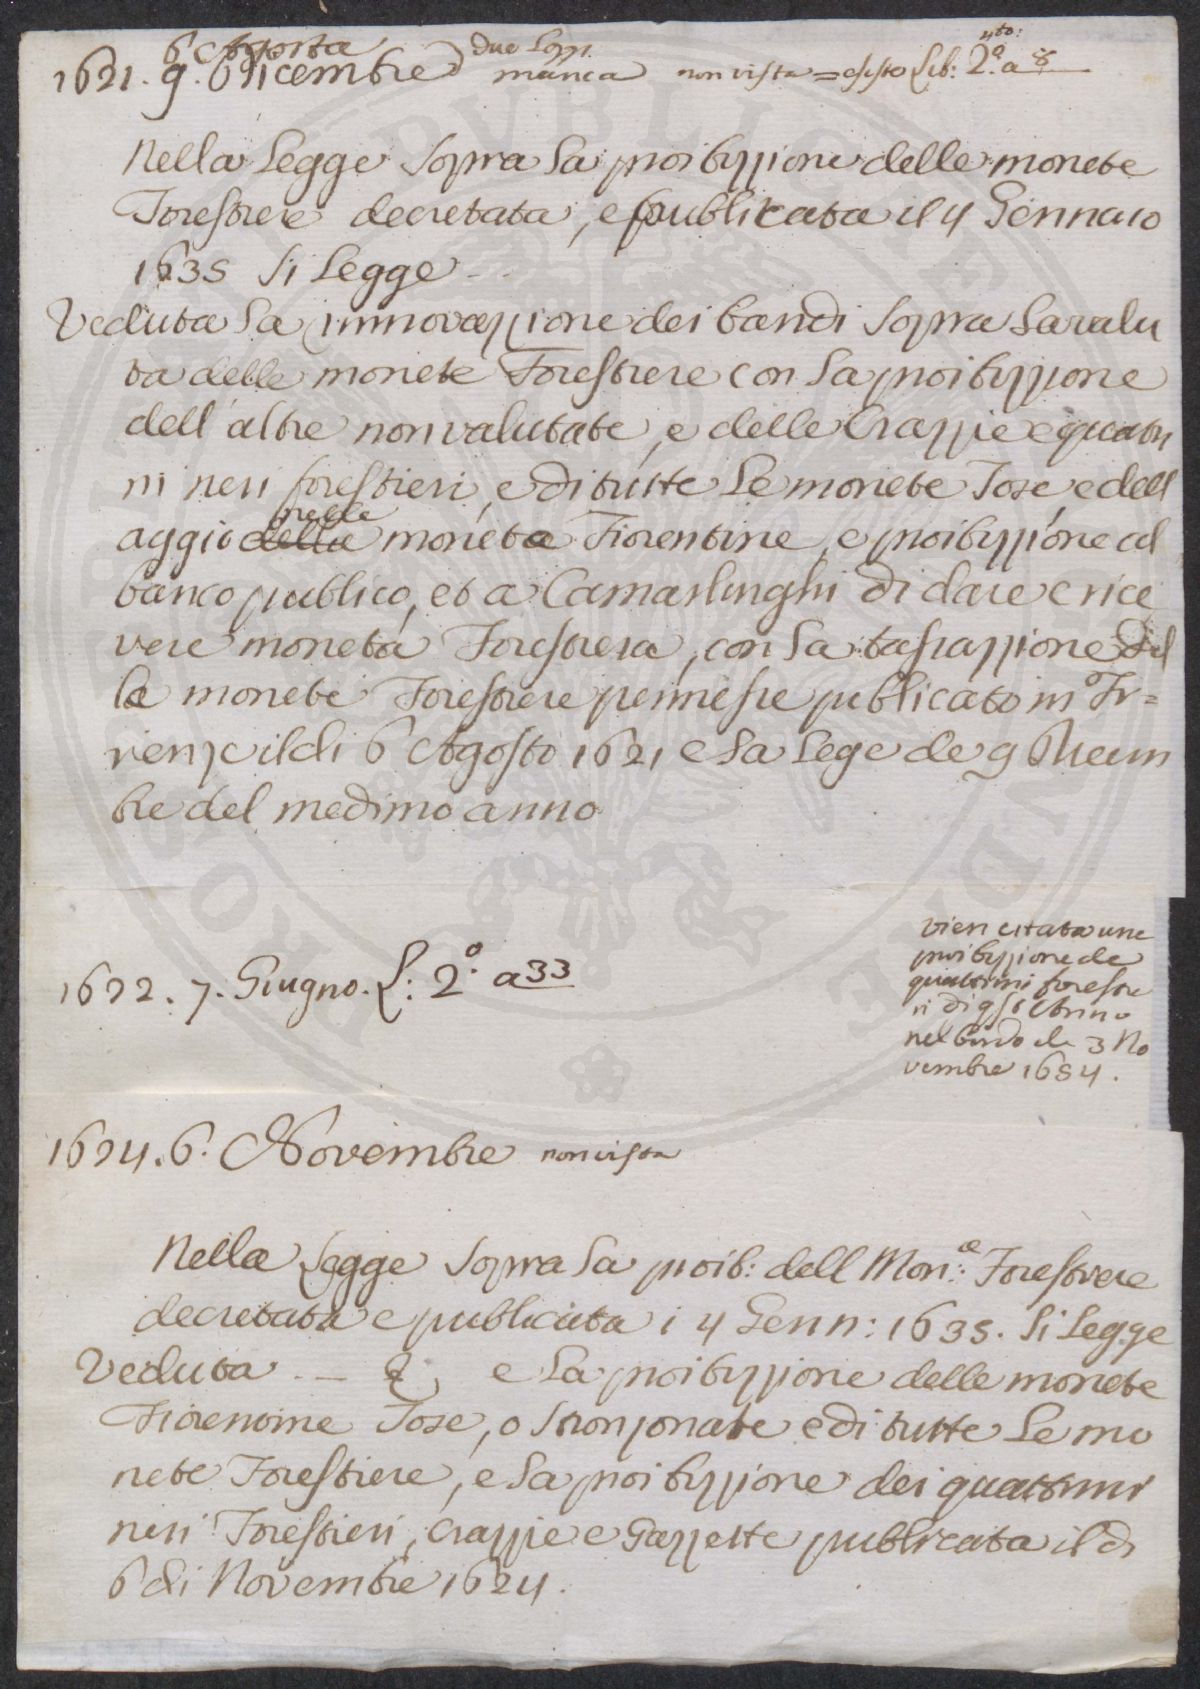 6 Agosto due Leggi
1621. 9. Dicembre manca non vista = esiste Lib: 2.º a 8
Nella Legge sopra la proibizzione delle monete
Forestiere decretata, e publicata il 4 Gennaio
1635 si Legge --
Veduta la innovazzione dei bandi sopra la valu
ta delle monete Forestiere con la proibizzione
dell'altre non valutate, e delle Crazzie e quatri
ni neri forestieri, e di tutte Le monete Tose e dell
aggio della nelle monete Fiorentine, e proibizzione al
banco publico, et a Camarlinghi di dare e rice
vere moneta Forestiera, con la tassazzione del
le monete Forestiere permesse publicato in Fi=
renze il di 6 Agosto 1621 e la Lege de 9 Dicem
bre del medimo anno
1622. 7. Giugno. L: 2.º a 33
vien citata una
proibizzione de
quattrini forestie
ri di
nel bando de 3 No
vembre 1654.
1624. 6. Novembre non vista
Nella Legge sopra la proib: dell Mon:e Forestiere
decretata e publicata i 4 Genn: 1635. si Legge
Veduta -- e la proibizzione delle monete
Fiorentine Tose, o stronzonate e di tutte Le mo
nete Forestiere, e la proibizzione dei quattrini
neri Forestieri, Crazzie e Gazzette publicata il di
6 di Novembre 1624.